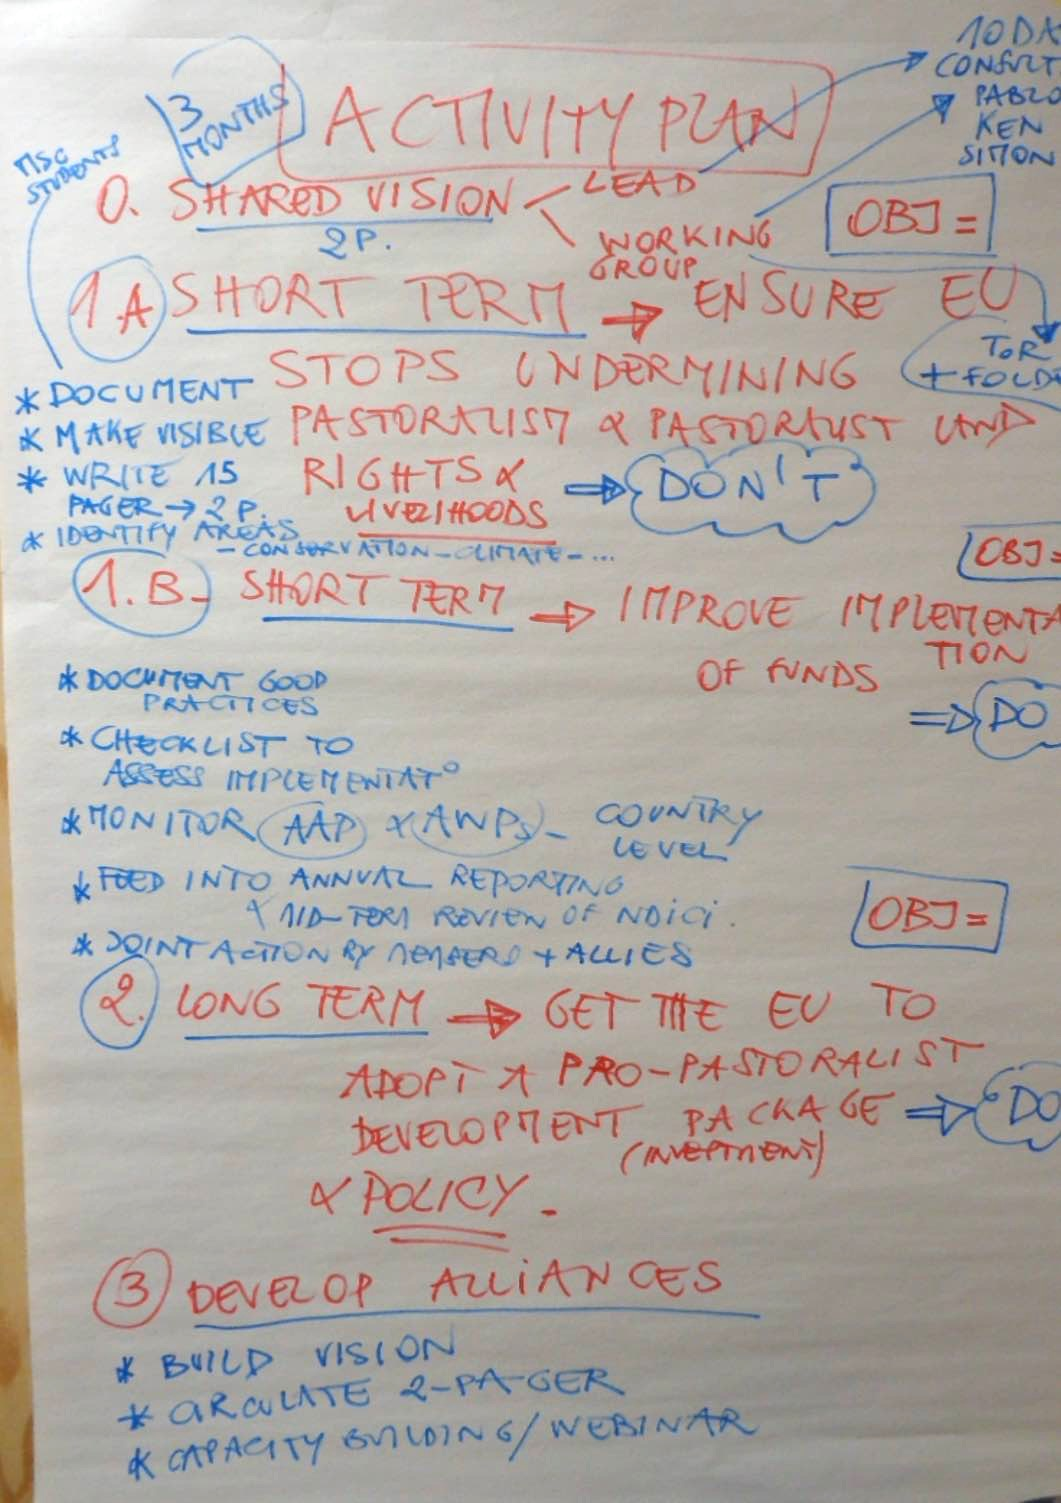 3 MONTHS
ACTIVITY PLAN
10 DA
CONSULT
PABLO
KEN
SIMON
MSC
STUDENTS
0. SHARED VISION
2 P.
LEAD
WORKING
GROUP
OBJ =
1A SHORT TERM → ENSURE EU
STOPS UNDERMINING
TOR
+ FOLD
PASTORALIST & PASTORALIST LAND
RIGHTS &
LIVELIHOODS
⇒ DON'T
* DOCUMENT
* MAKE VISIBLE
* WRITE 15
PAGER → 2 P.
* IDENTIFY AREAS
- CONSERVATION - CLIMATE - ...
OBJ =
1.B- SHORT TERM ⇒ IMPROVE IMPLEMENTA
TION
OF FUNDS
⇒ DO
* DOCUMENT GOOD
PRACTICES
* CHECKLIST TO
ASSESS IMPLEMENTAT°
* MONITOR AAP & AWPs - COUNTRY
LEVEL
* FEED INTO ANNUAL REPORTING
& MID-TERM REVIEW OF NDICI.
* JOINT ACTION BY MEMBERS + ALLIES
OBJ =
2. LONG TERM → GET THE EU TO
ADOPT A PRO-PASTORALIST
DEVELOPMENT PACKAGE ⇒ DO
(INVESTMENT)
& POLICY.
3 DEVELOP ALLIANCES
* BUILD VISION
* CIRCULATE 2-PAGER
* CAPACITY BUILDING/WEBINAR